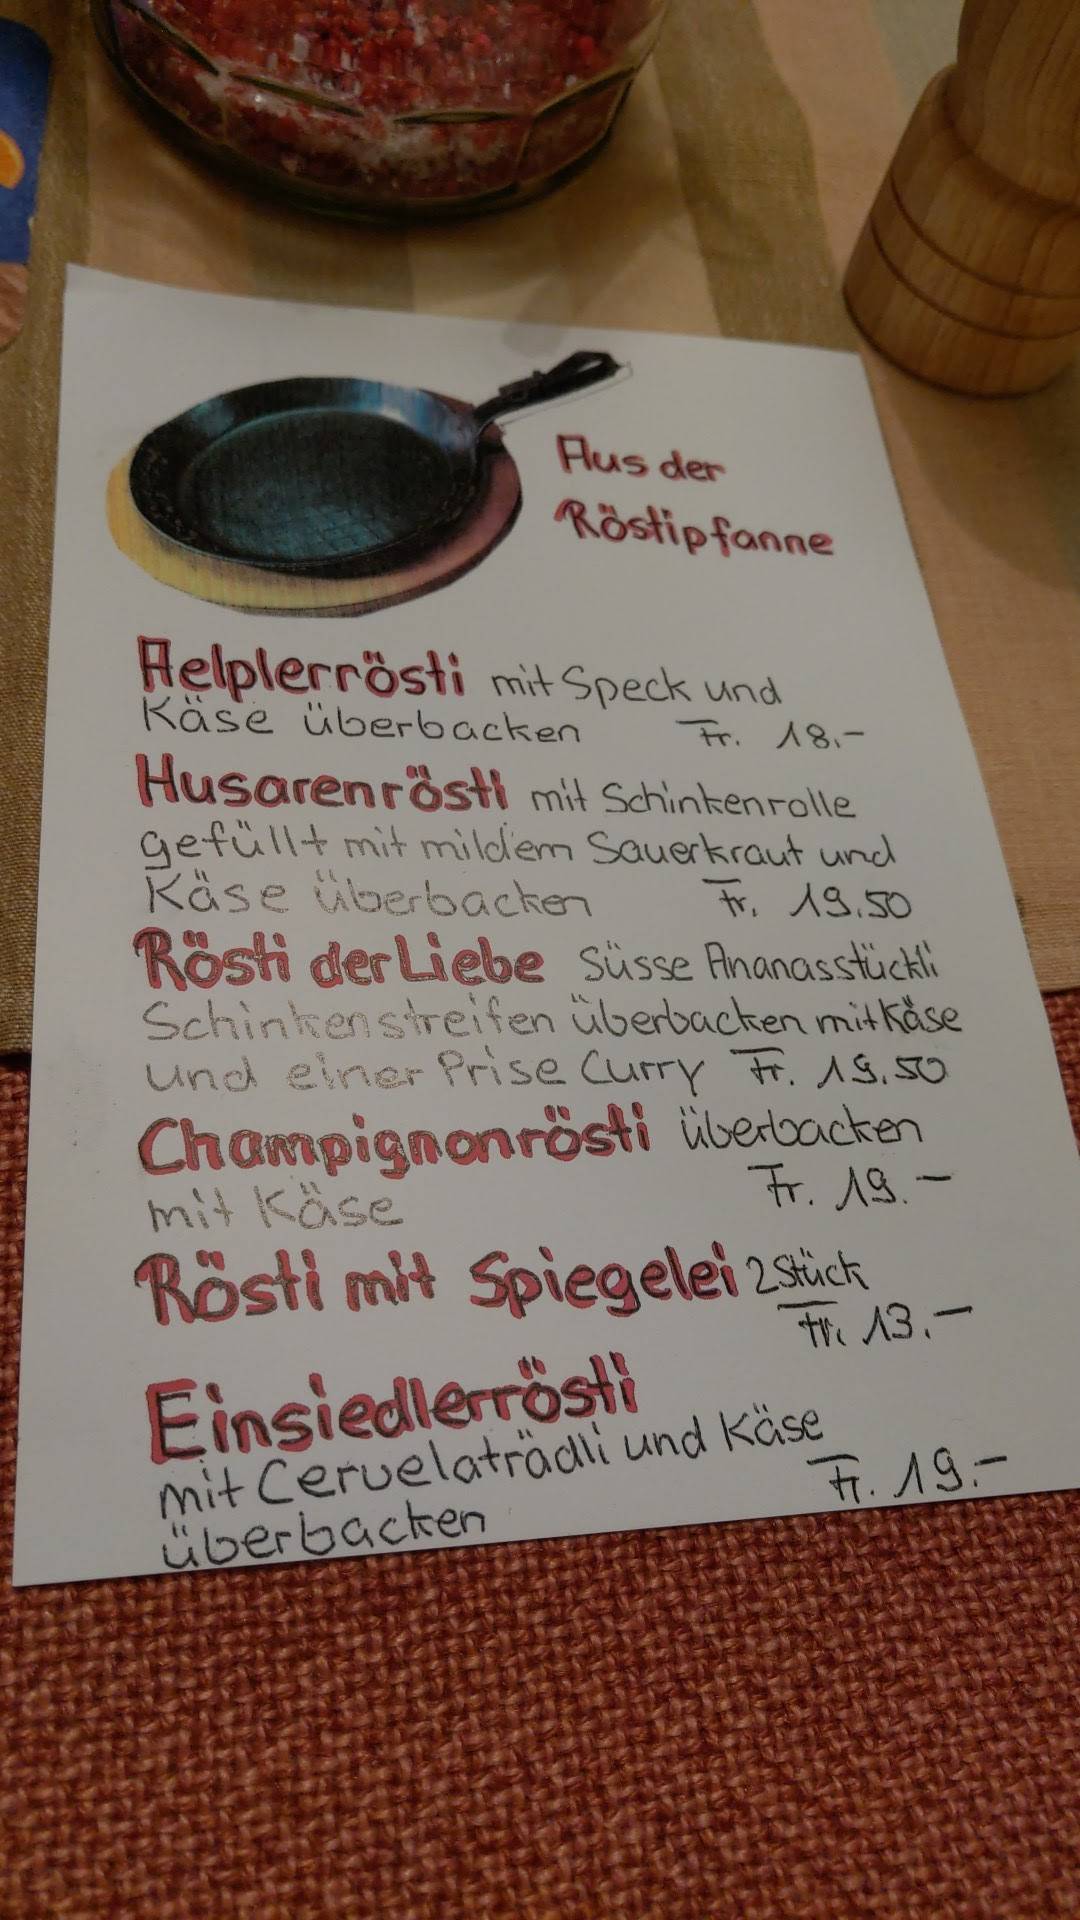 Aus der
Röstipfanne
Aelplerrösti mit Speck und
Käse überbacken Fr. 18.-
Husarenrösti mit Schinkenrolle
gefüllt mit mildem Sauerkraut und
Käse überbacken Fr. 19.50
Rösti der Liebe süsse Ananasstückli
Schinkenstreifen überbacken mit Käse
und einer Prise Curry Fr. 19.50
Champignonrösti überbacken
mit Käse Fr. 19.-
Rösti mit Spiegelei 2 Stück
Fr. 13.-
Einsiedlerrösti
mit Cervelaträdli und Käse
überbacken Fr. 19.-